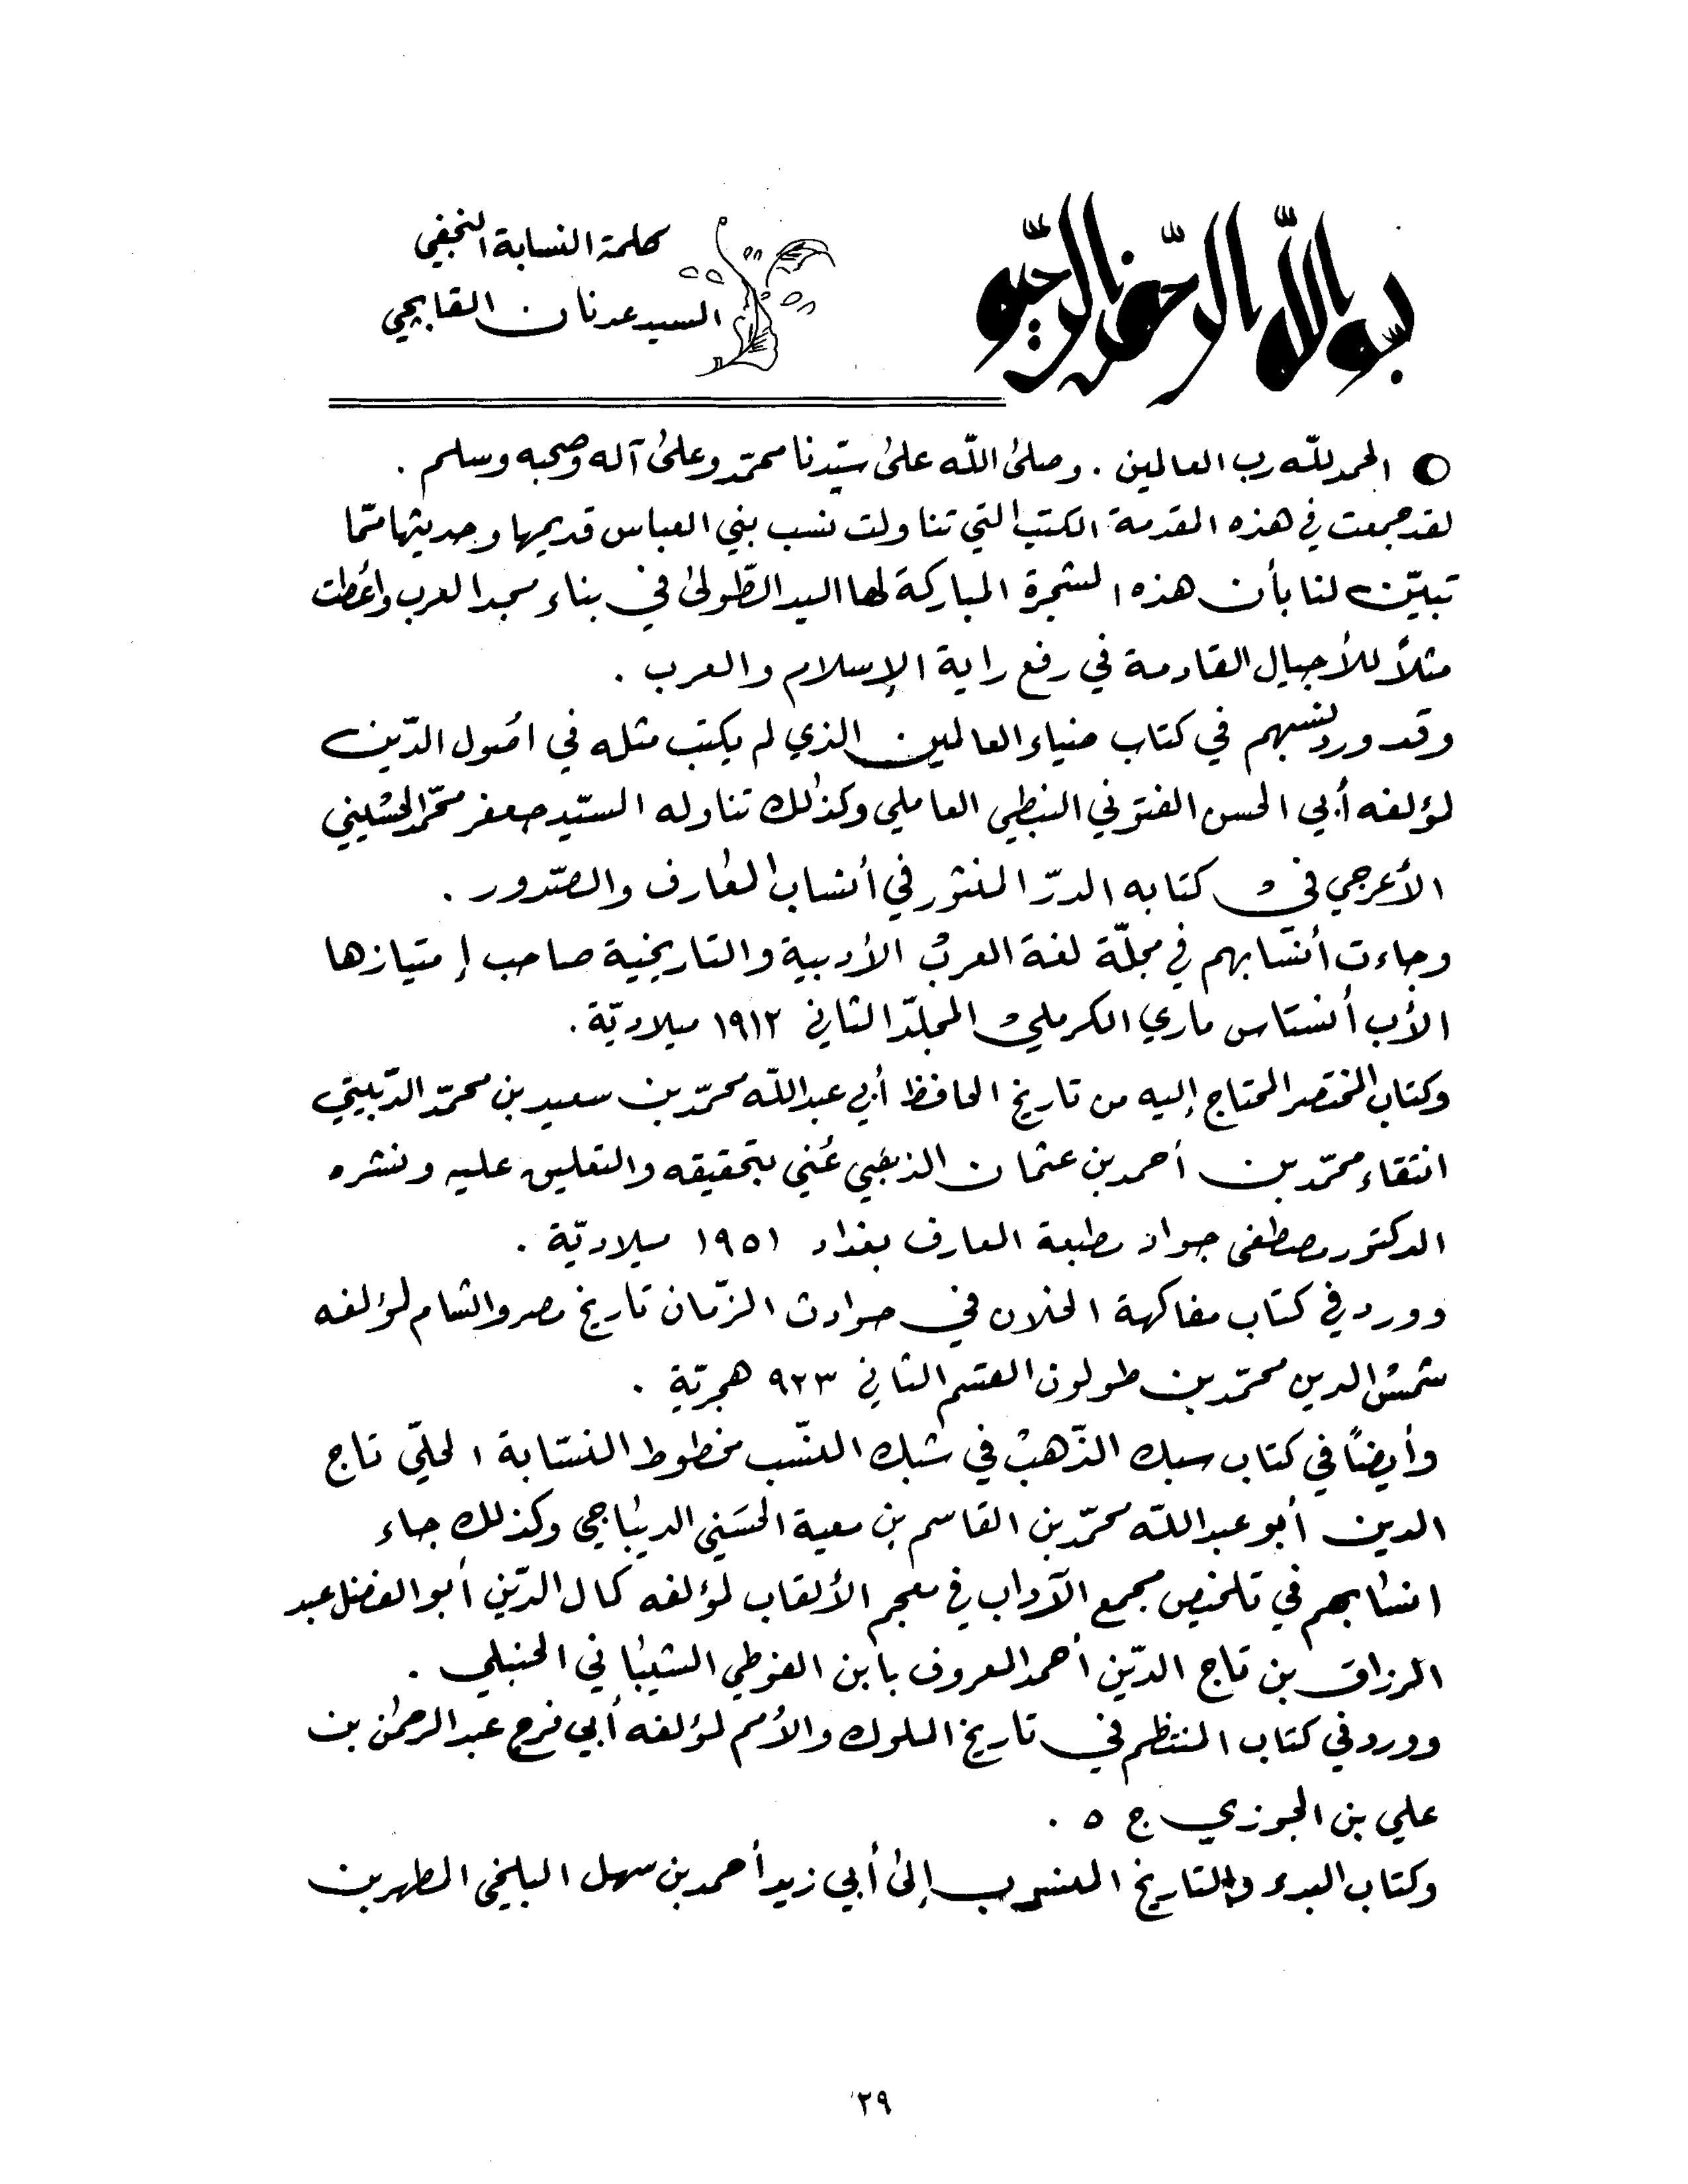 بسم الله الرحمن الرحيم
كلمة النسابة النجفي
السيد عدنان القابچي
الحمد لله رب العالمين . وصلىٰ الله علىٰ سيّدنا محمّد وعلىٰ آله وصحبه وسلم .
لقد جمعت في هذه المقدمة الكتب التي تناولت نسب بني العباس قديمها وحديثها ممّا
تبيّن لنا بأن هذه الشجرة المباركة لها اليد الطّولىٰ في بناء مجد العرب وأعطت
مثلاً للأجيال القادمة في رفع راية الإسلام والعرب .
وقد ورد نسبهم في كتاب ضياء العالمين الذي لم يكتب مثله في اصُول الدّين
لمؤلفه أبي الحسن الفتوني النبطي العاملي وكذلك تناوله السيّد جعفر محمّد الحسيني
الأعرجي في كتابه الدرّ المنثور في أنساب المعارف والصّدور .
وجاءت أنسابهم في مجلّة لغة العرب الأدبية والتاريخية صاحب إمتيازها
الأب أنستاس ماري الكرملي المجلّد الثاني ١٩١٢ ميلاديّة .
وكتاب المختصر المحتاج إليه من تاريخ الحافظ أبي عبد اللّه محمّد بن سعيد بن محمّد الدّبيثي
انتقاء محمّد بن أحمد بن عثمان الذهبي عُني بتحقيقه والتعليق عليه ونشره
الدكتور مصطفى جواد مطبعة المعارف بغداد ١٩٥١ ميلاديّة .
وورد في كتاب مفاكهة الخلان في حوادث الزّمان تاريخ مصر والشام لمؤلفه
شمس الدين محمّد بن طولون القسم الثاني ٩٢٣ هجريّة .
وأيضاً في كتاب سبك الذّهب في شبك النسّب مخطوط النسّابة الحلّي تاج
الدين أبو عبد اللّه محمّد بن القاسم بن معية الحسَني الديباجي وكذلك جاء
انسابهم في تلخيص مجمع الآداب في معجم الألقاب لمؤلفه كمال الدّين أبو الفضل عبد
الرزاق بن تاج الدّين أحمد المعروف بابن الفوطي الشيباني الحنبلي .
وورد في كتاب المنتظم في تاريخ الملوك والأمم لمؤلفه أبي فرج عبد الرحمٰن بن
علي بن الجوزي ج ٥ .
وكتاب البدء والتاريخ المنسوب إلىٰ أبي زيد أحمد بن سهل البلخي المطهر بن
٢٩